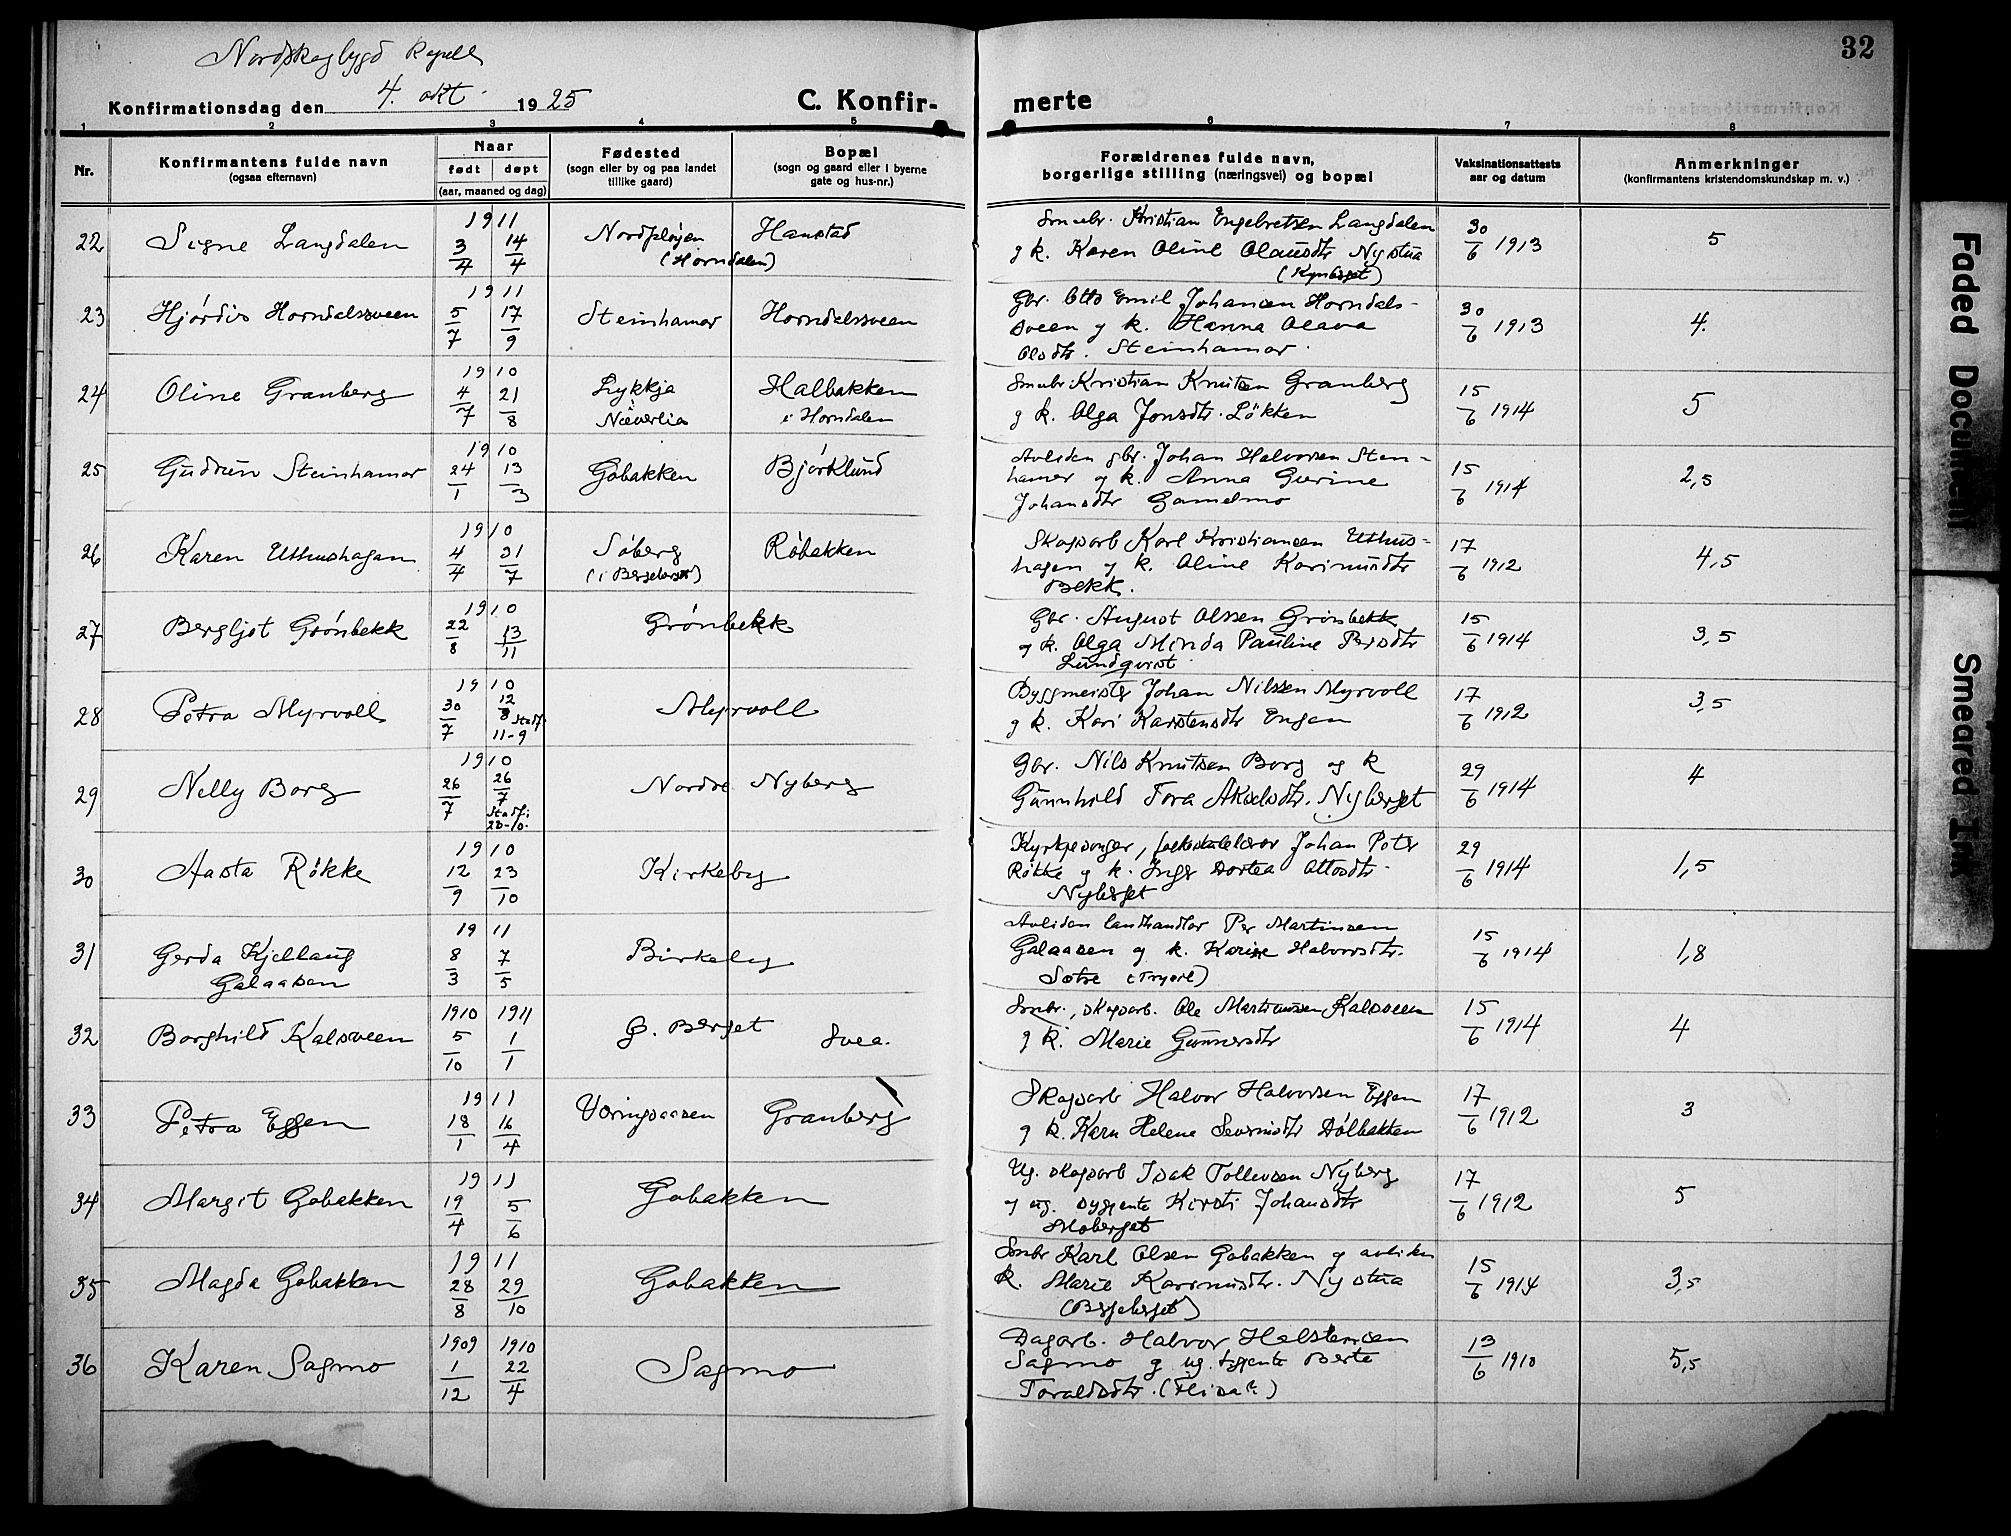 Nordskogbygd kapell
32
Konfirmationsdag den 4. okt. 1925
C. Konfir- merte
1 2 3 4 5 6 7 8
Nr.
Konfirmantens fulde navn
(ogsaa efternavn)
Naar
født døpt
(aar, maaned og dag)
Fødested
(sogn eller by og paa landet
tillike gaard)
Bopæl
(sogn og gaard eller i byerne
gate og hus-nr.)
Forældrenes fulde navn,
borgerlige stilling (næringsvei) og bopæl
Vaksinationsattests
aar og datum
Anmerkninger
(konfirmantens kristendomskundskap m. v.)
22 Signe Langdalen 1911 3/4 14/4 (Horndalen) Hanstad
Smbr. Kristian Engebretsen Langdalen
g k. Karen Oline Olausdtr Nystua
30/6 1913 5
23 Hjørdis Horndalssveen 1911 5/7 17/9 Steinhamar Horndalssveen
Gbr. Otto Emil Johansen Horndals-
sveen g k. Hanna Olava
Olsdtr. Steinhamar.
30/6 1913 4.
24 Oline Granberg 1910 4/7 21/8 Lykkja Næverlia Halbakken i Horndalen
Smbr Kristian Knutsen Granberg
g k. Olga Jonsdtr. Løkken
15/6 1914 5
25 Gudrun Steinhamar 1910 24/1 13/3 Gobakken Bjørklund
Avliden gbr. Johan Halvorsen Stein-
hamar og k. Anna Gurine
Johansdtr Gamelmo
15/6 1914 2,5
26 Karen Uthushagen 1910 4/4 31/7 Søberg (i Bergeberget) Røbakken
Skogsarb Karl Kristiansen Uthus-
hagen g k. Oline Karimusdtr
Bekk.
17/6 1912 4,5
27 Bergljot Grønbekk 1910 22/8 13/11 Grønbekk
Gbr. August Olssen Grønbekk
g k. Olga Minda Pauline Persdtr
Lundqvist
15/6 1914 3,5
28 Petra Myrvoll 1910 30/7 12/8 Stadf. 11-9 Myrvoll
Byggmeister Johan Nilssen Myrvoll
g k. Kari Karstensdtr Engen
17/6 1912 3,5
29 Nelly Borg 1910 26/7 26/7 Stadf: 23-10. Nordre Nyberg
Gbr. Nils Knutsen Borg og k
Gunnhild Tora Akselsdtr. Nyberget
29/6 1914 4
30 Aasta Røkke 1910 12/9 23/10 Kirkeby
Kyrkjesonger, Johan Peter
Røkke g k. Inger Dortea Ottosdtr.
Nyberget
29/6 1914 1,5
31 Gerda Kjellaug
Galaasen 1911 8/3 7/5 Birkeby
Avliden landhandler Per Martinsen
Galaasen og k. Karine Halvorsdtr.
Sætre (Trysil)
15/6 1914 1,8
32 Borghild Kalsveen 1910 5/10 1911 1/1 G. Berget Svea.
Smbr., skogsarb. Ole Martinusen Kalsveen
g k. Marie Gunnersdtr
15/6 1914 4
33 Petra Eggen 1911 18/1 16/4 Væringsaasen Granberg
Skogsarb Halvor Halvorsen Eggen
g k. Karn Helene Severinsdtr Dølbakken
17/6 1912 3
34 Margit Gobakken 1911 19/4 5/6 Gobakken
Ug. skogsarb Isak Tollevsen Nyberg
g ug. Kirsti Johansdtr
Moberget
17/6 1912 5
35 Magda Gobakken 1911 28/8 29/10 Gobakken
Smbr Karl Olsen Gobakken g avliden
k. Marie Karimusdtr. Nystua
(Bergeberget)
15/6 1914 3,5
36 Karen Sagmo 1909 1/12 1910 22/4 Sagmo
Dagarb. Halvor Helstensen
Sagmo g ug. Berte
Toraldsdtr. (Flisa?)
13/6 1910 5,5
Faded Document
Smeared Ink